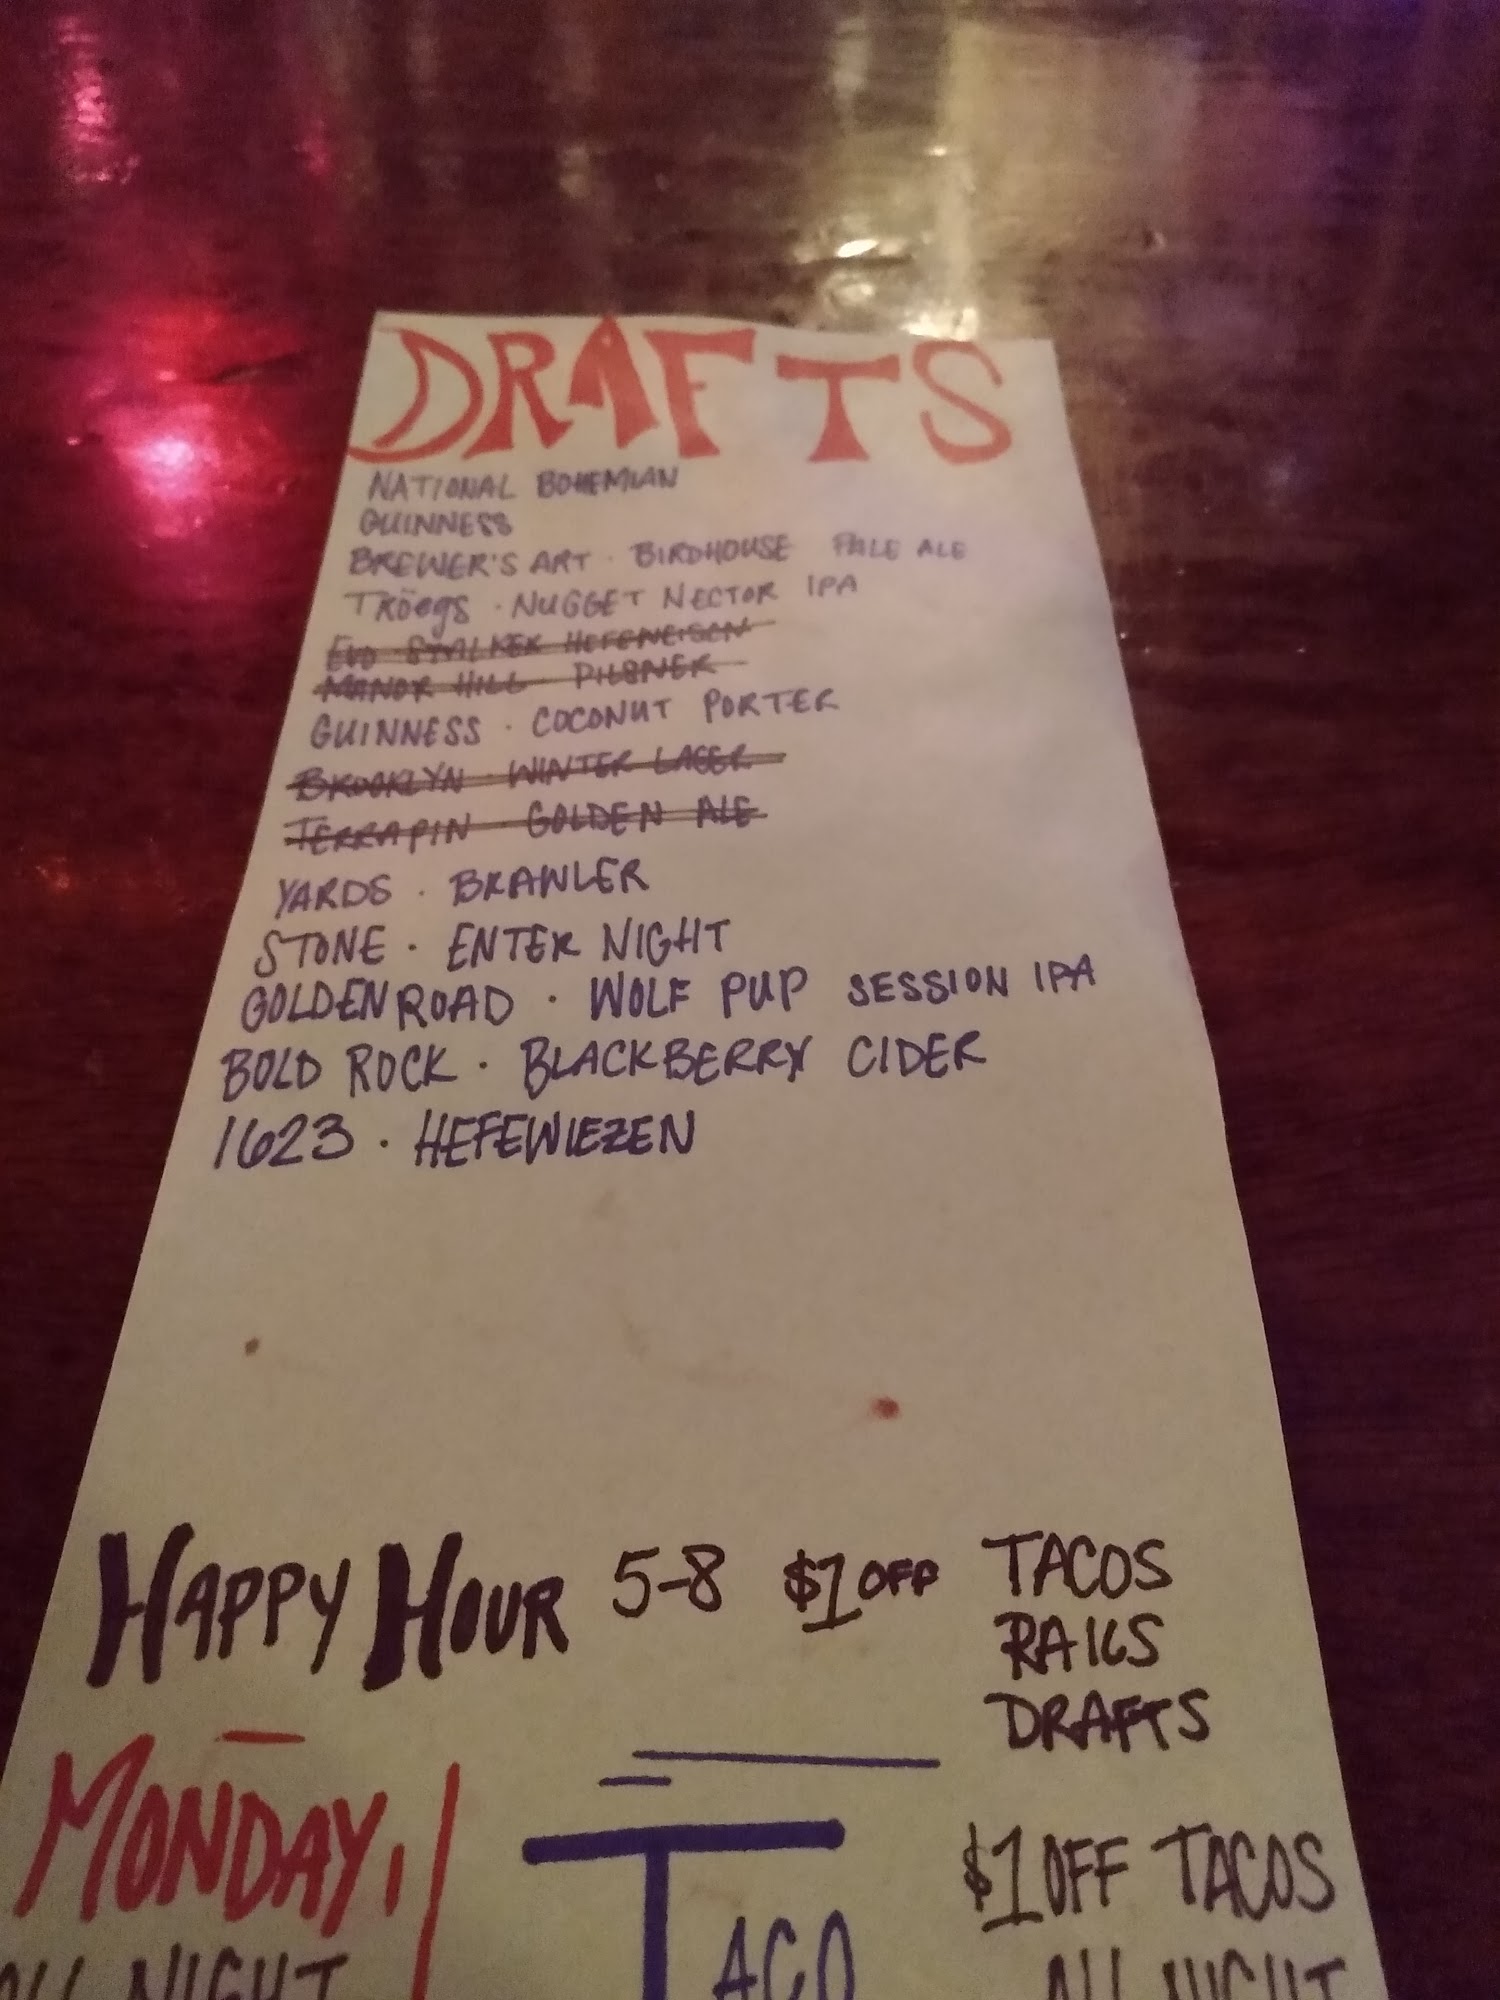 DRAFTS
NATIONAL BOHEMIAN
GUINNESS
BREWER'S ART · BIRDHOUSE PALE ALE
TRÖEGS · NUGGET NECTOR IPA
EVO STALKER HEFEWEISEN
MANOR HILL PILSNER
GUINNESS · COCONUT PORTER
BROOKLYN · WINTER LAGER
TERRAPIN · GOLDEN ALE
YARDS · BRAWLER
STONE · ENTER NIGHT
GOLDEN ROAD · WOLF PUP SESSION IPA
BOLD ROCK · BLACKBERRY CIDER
1623 · HEFEWIEZEN
HAPPY HOUR 5-8 $1 OFF TACOS
RAILS
DRAFTS
MONDAY
ALL NIGHT
TACO
$1 OFF TACOS
ALL NIGHT